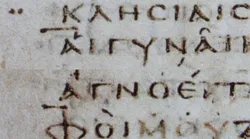 ΚΛΗCΙΑΙC
ΑΙΓΥΝΑΙΚ
ΑΓΝΟΕΙΤ
ΦΟΙΜΟΥ